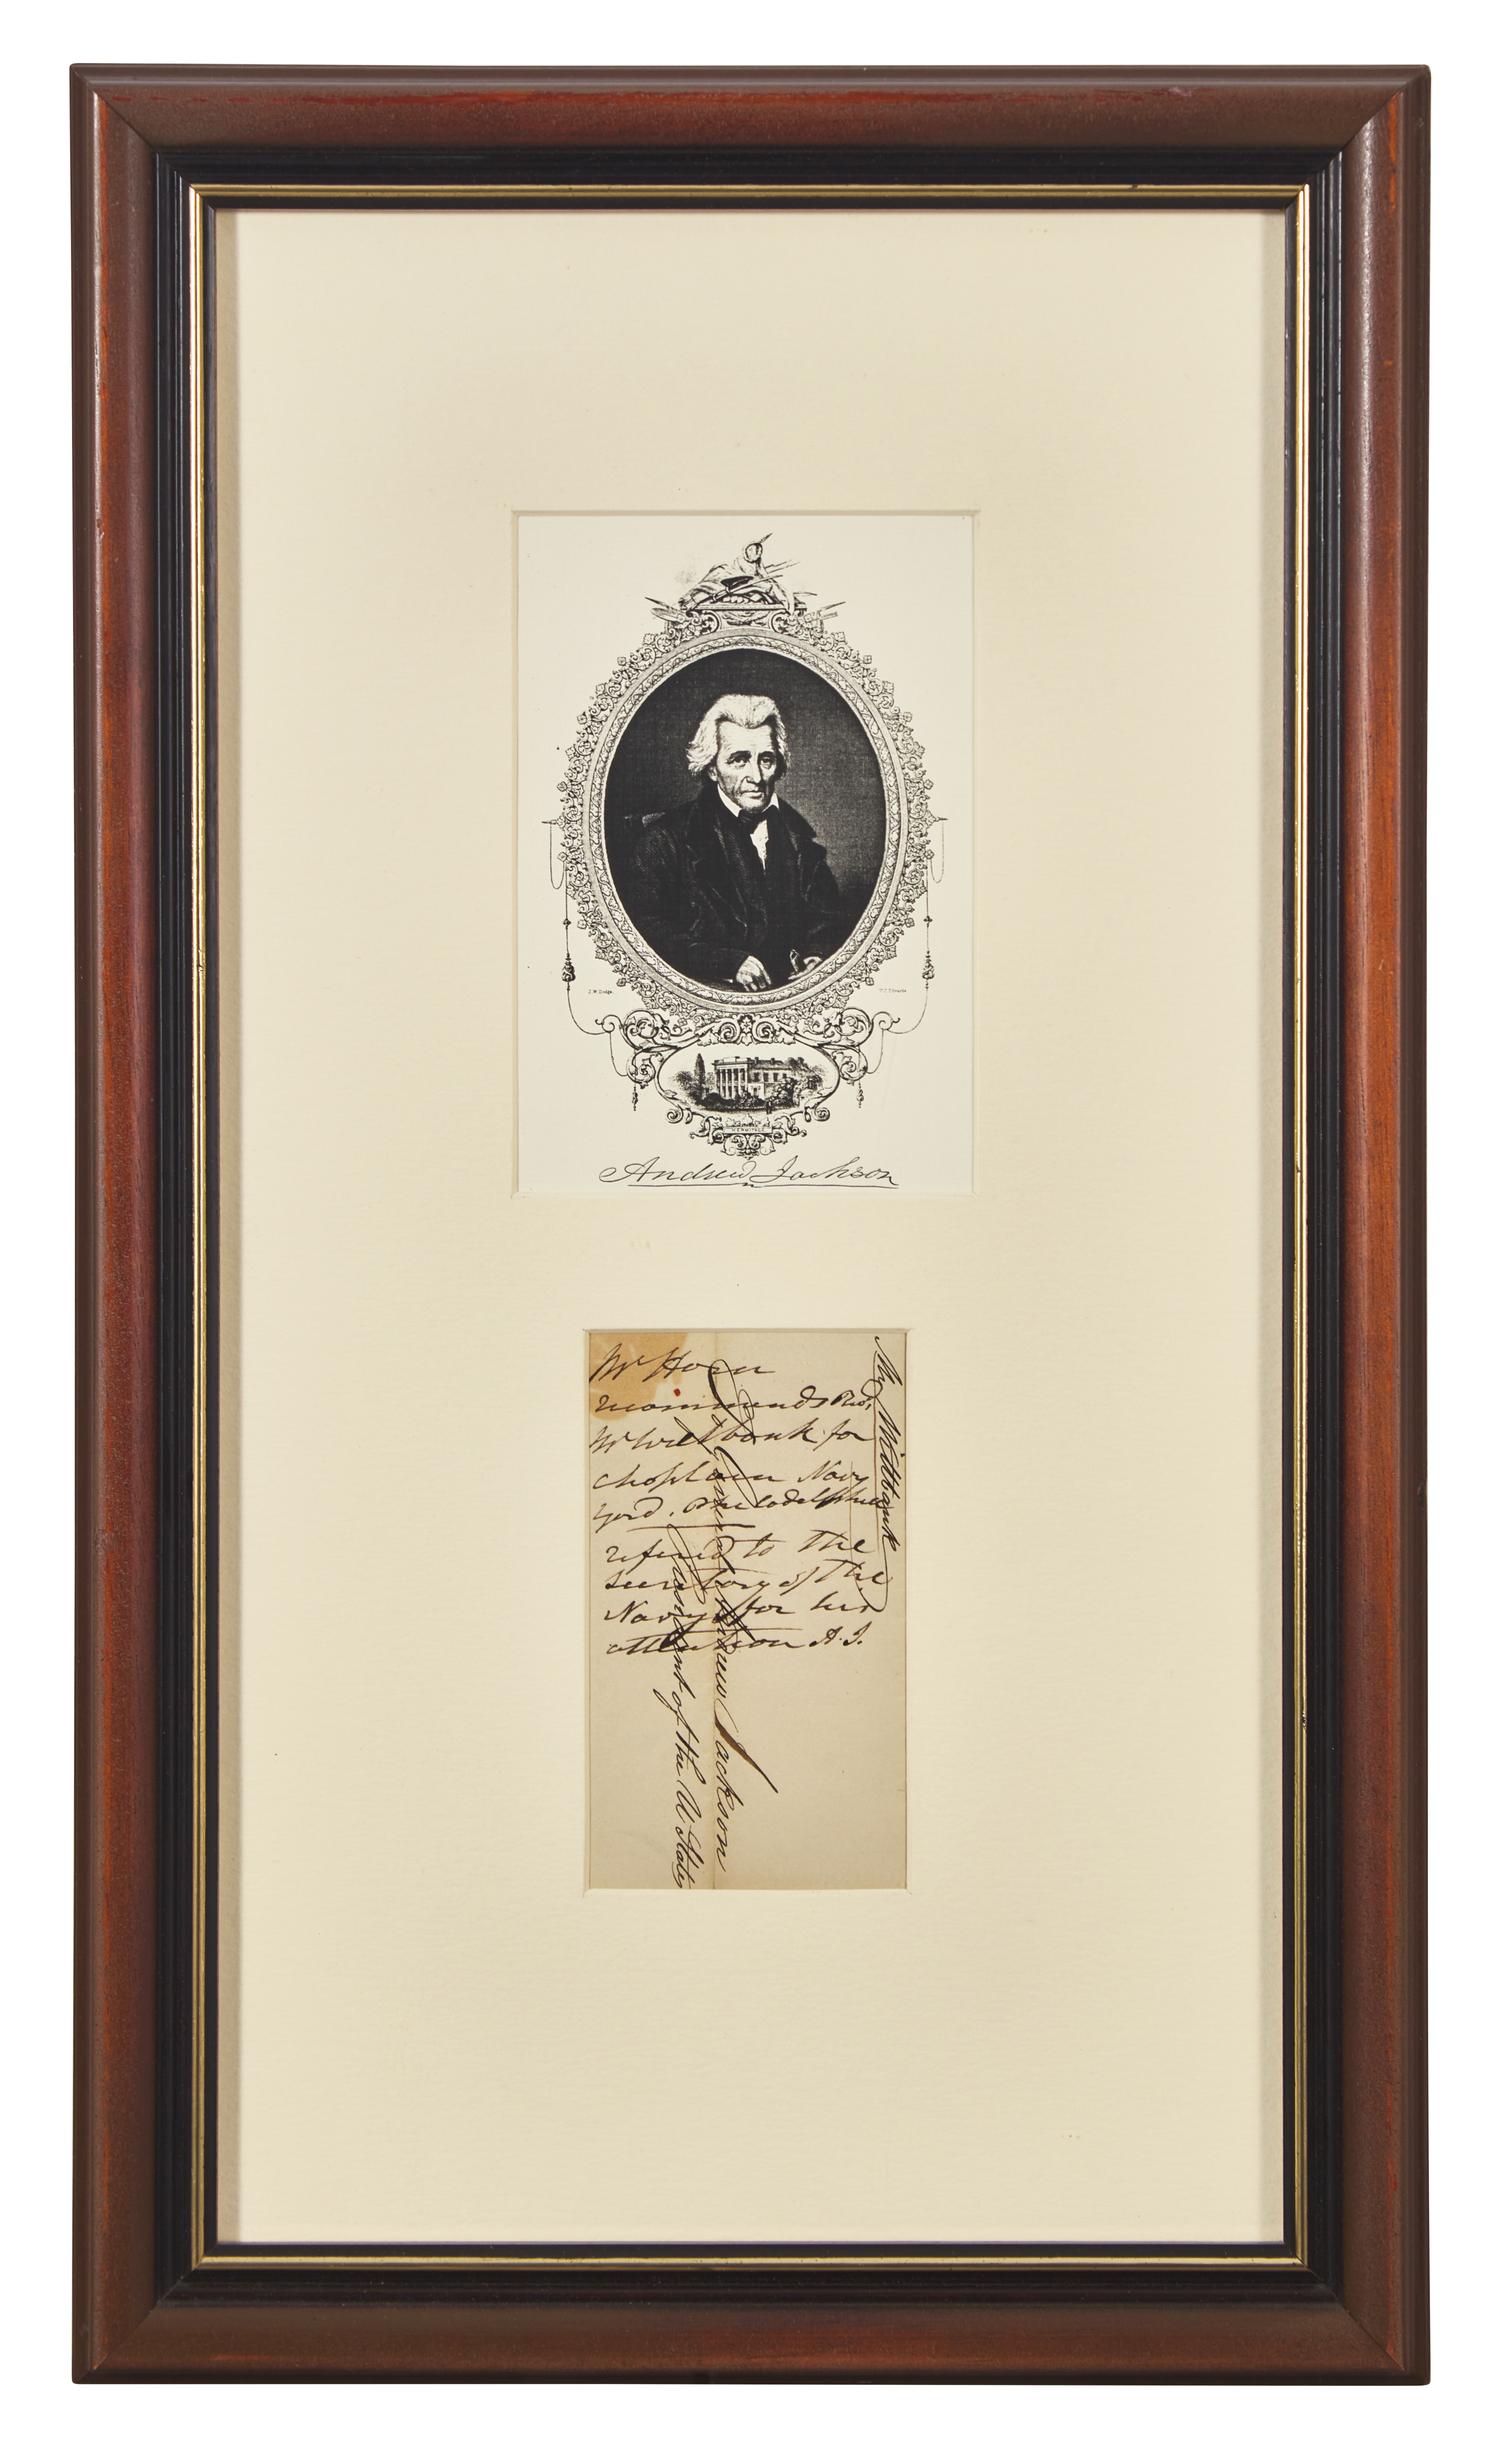 J.W. Dodge.
HERMITAGE
Andrew Jackson
Mr Horn
recommends Revd,
Mr Wiltbank for
chaplain Navy
yard. Philadelphia
referred to the
Secretary of the
Navy for his
attention A. J.
Wiltbank
General Andrew Jackson
President of the U States